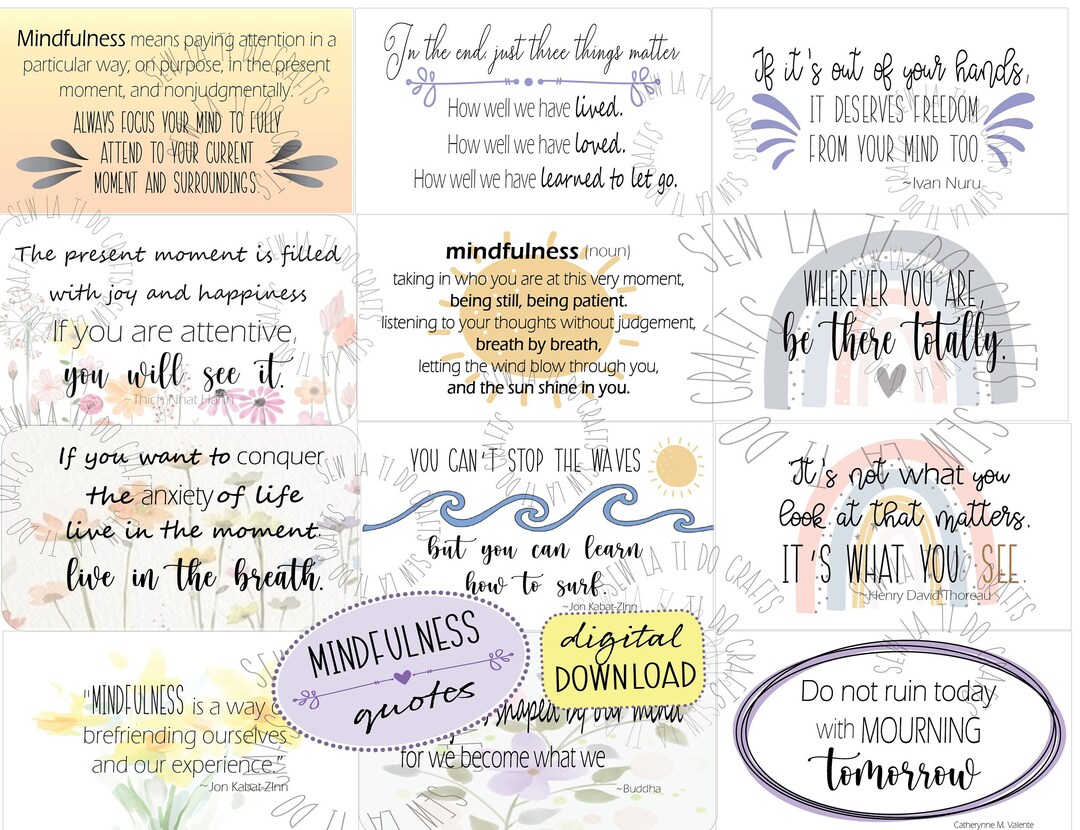 Mindfulness means paying attention in a
particular way; on purpose, in the present
moment, and nonjudgmentally.
ALWAYS FOCUS YOUR MIND TO FULLY
ATTEND TO YOUR CURRENT
MOMENT AND SURROUNDINGS.
In the end, just three things matter
How well we have lived.
How well we have loved.
How well we have learned to let go.
If it's out of your hands,
IT DESERVES FREEDOM
FROM YOUR MIND TOO.
~Ivan Nuru
The present moment is filled
with joy and happiness
If you are attentive,
you will see it.
~Thich Nhat Hanh
mindfulness (noun)
taking in who you are at this very moment,
being still, being patient.
listening to your thoughts without judgement,
breath by breath,
letting the wind blow through you,
and the sun shine in you.
WHEREVER YOU ARE,
be there totally.
If you want to conquer
the anxiety of life
live in the moment.
live in the breath.
YOU CAN'T STOP THE WAVES
but you can learn
how to surf.
~Jon Kabat-ZInn
It's not what you
look at that matters.
IT'S WHAT YOU SEE.
~Henry David Thoreau
"MINDFULNESS is a way
brefriending ourselves
and our experience."
~Jon Kabat-ZInn
MINDFULNESS
quotes
digital
DOWNLOAD
shaped by our mind
for we become what we
~Buddha
Do not ruin today
with MOURNING
tomorrow
Catherynne M. Valente
SEW LA TI DO CRAFTS